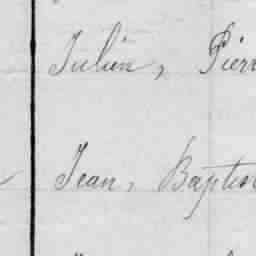 Julien, Pierr
Jean, Baptis